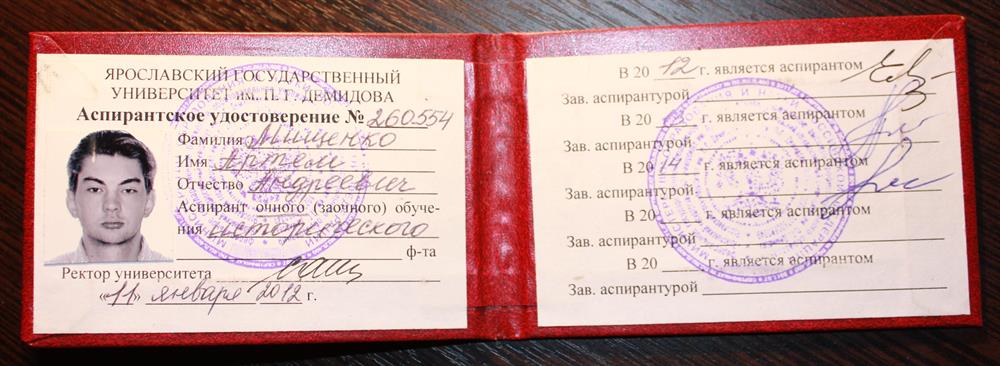 ЯРОСЛАВСКИЙ ГОСУДАРСТВЕННЫЙ
УНИВЕРСИТЕТ им. П.Г. ДЕМИДОВА
Аспирантское удостоверение № 260554
Фамилия Мищенко
Имя Артем
Отчество Андреевич
Аспирант очного (заочного) обуче-
ния исторического
ф-та
Ректор университета
«11» января 2012 г.
В 20 12 г. является аспирантом
Зав. аспирантурой
В 20 13 г. является аспирантом
Зав. аспирантурой
В 20 14 г. является аспирантом
Зав. аспирантурой
В 20 г. является аспирантом
Зав. аспирантурой
В 20 г. является аспирантом
Зав. аспирантурой